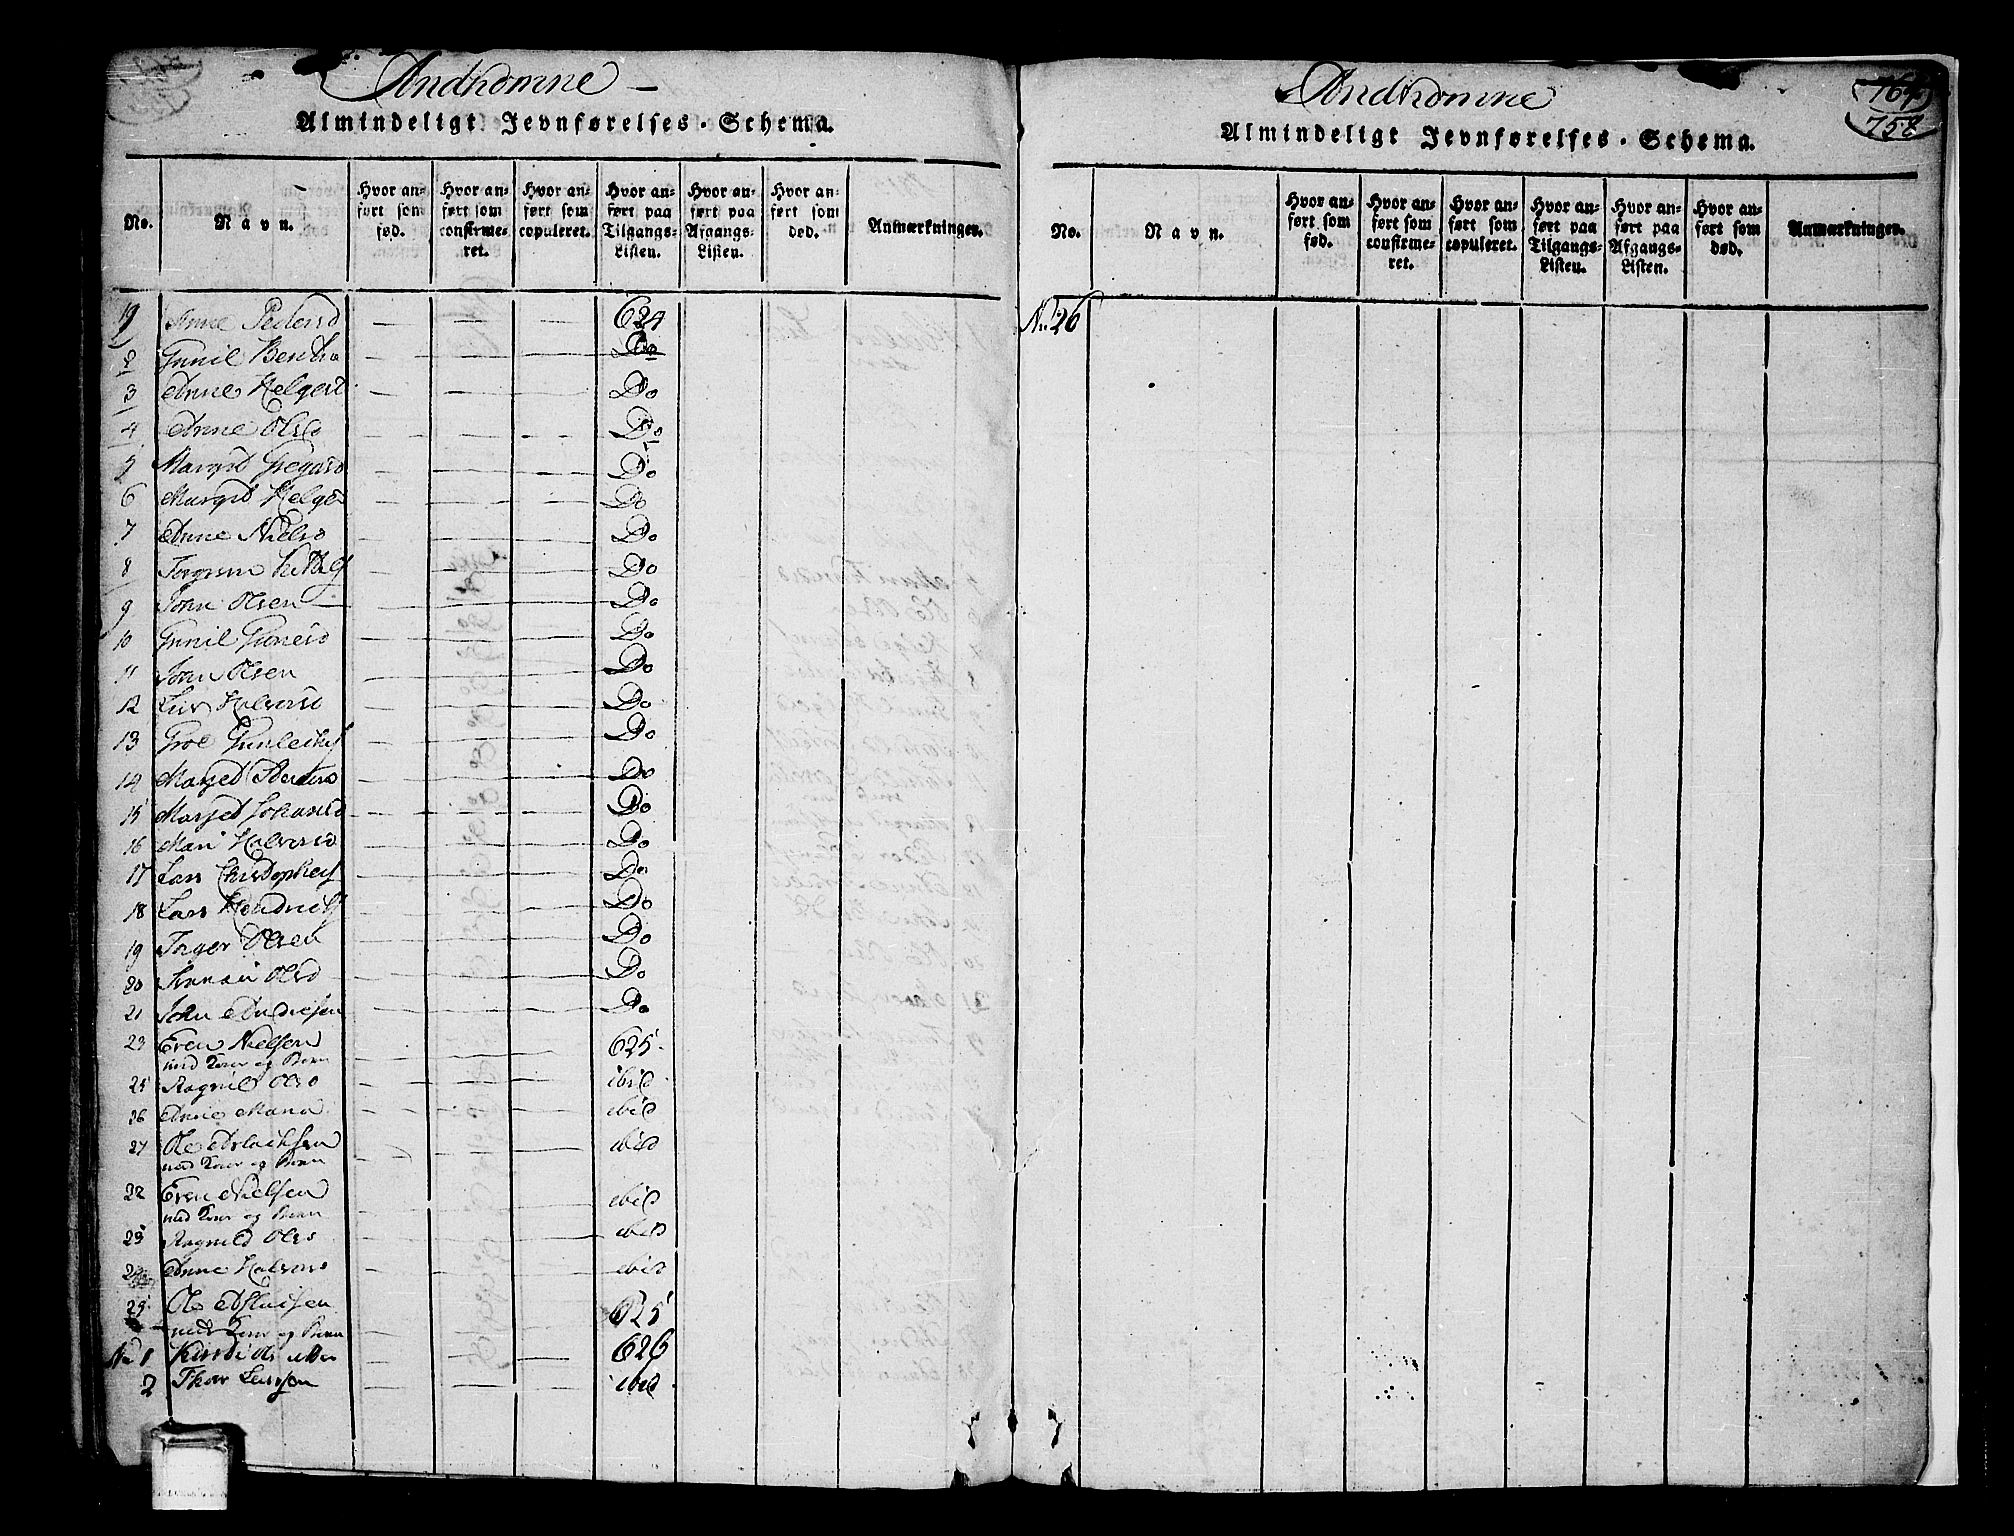 Andkomne
Almindeligt Jevnførelses-Schema.
No.
Navn.
Hvor anført som fød.
Hvor anført som confirmeret.
Hvor anført som copuleret.
Hvor anført paa Tilgangs-Listen.
Hvor anført paa Afgangs-Listen.
Hvor anført som død.
Anmærkninger.
19 Anne Pedersd — — — 624
2 Gunil Bentsd — — — Do
3 Anne Helgesd — — — Do
4 Anne Olsd — — — Do
5 Margit Gregarsd — — — Do
6 Margit Helges — — — Do
7 Anne Nielsd — — — Do
8 Torgrem Kittels — — — Do
9 John Olsen — — — Do
10 Gunil Gunesd — — — Do
11 John Olsen — — — Do
12 Liv Halvorsd — — — Do
13 Groe Gunleiks — — — Do
14 Marged — — — Do
15 Marged Johansd — — — Do
16 Mari Halvorsd — — — Do
17 Lars Christophers — — — Do
18 Lars Hendrichs — — — Do
19 Inger Olsen — — — Do
20 Olsd — — — Do
21 John Andresen — — — Do
23 Even Nielsen — — — 625
med Kone og Børn
25 Ragnild Olsd — — — ibid
26 Anne Maria — — — ibid
27 Ole Aslachsen — — — ibid
med Kone og Børn
22 Even Nielsen — — — ibid
med Kone og Børn
23 Ragnild Olsd — — — ibid
Anne Halvorsd — — — ibid
25 Ole Aslacsen — — — 625
med Kone og Børn
No 1 — — — 626
2 Thor Larssen — — — ibid
Andkomne
764
758
Almindeligt Jevnførelses-Schema.
No.
Navn.
Hvor anført som fød.
Hvor anført som confirmeret.
Hvor anført som copuleret.
Hvor anført paa Tilgangs-Listen.
Hvor anført paa Afgangs-Listen.
Hvor anført som død.
Anmærkninger.
No 26